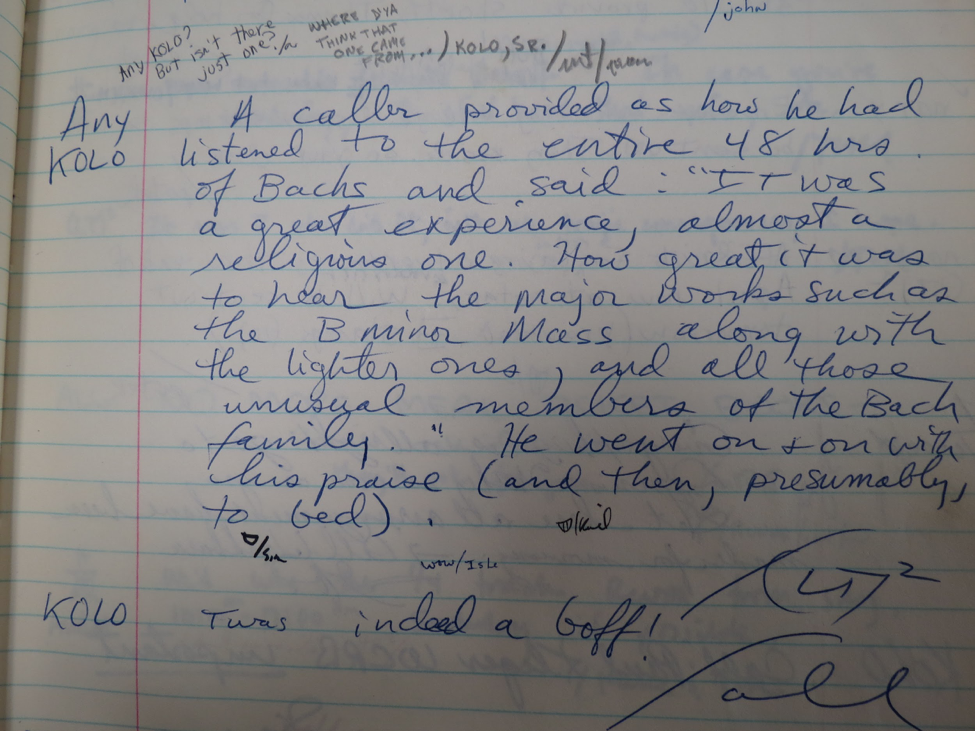 /john
Any KOLO?
But isn't there
just one?
WHERE D'YA
THINK THAT
ONE CAME
FROM...) KOLO, SR.
Any
KOLO
A caller provided as how he had
listened to the entire 48 hrs.
of Bachs and said : "It was
a great experience, almost a
religious one. How great it was
to hear the major works such as
the B minor Mass along with
the lighter ones, and all those
unusual members of the Bach
family." He went on + on with
his praise (and then, presumably,
to bed).
wow/Isle
KOLO Twas indeed a boff!
all